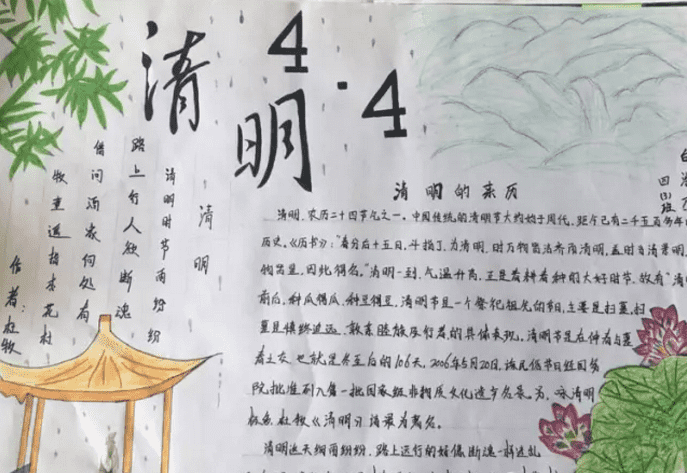 清明
4·4
清明
清明时节雨纷纷
路上行人欲断魂
借问酒家何处有
牧童遥指杏花村
作者:杜牧
四
班
清明的来历
清明,农历二十四节气之一。中国传统的清明节大约始于周代,距今已有二千五百多年
历史。《历书》:"春分后十五日,斗指丁,为清明,时万物皆洁齐而清明,盖时当清景明,
物皆显,因此得名。"清明一到,气温升高,正是春耕春种的大好时节,故有"清
前后,种瓜得瓜,种豆得豆。清明节是一个祭祀祖先的节日,主要是扫墓,扫
墓是慎终追远、敦亲睦族及行孝的具体表现,清明节是在仲春与暮
春之交,也就是冬至后的106天,2006年5月20日,该民俗节日经国务
院批准列入第一批国家级非物质文化遗产名录。咏清明
杜牧《清明》诗最为著名。
清明这天细雨纷纷,路上远行的好像断魂一样迷乱